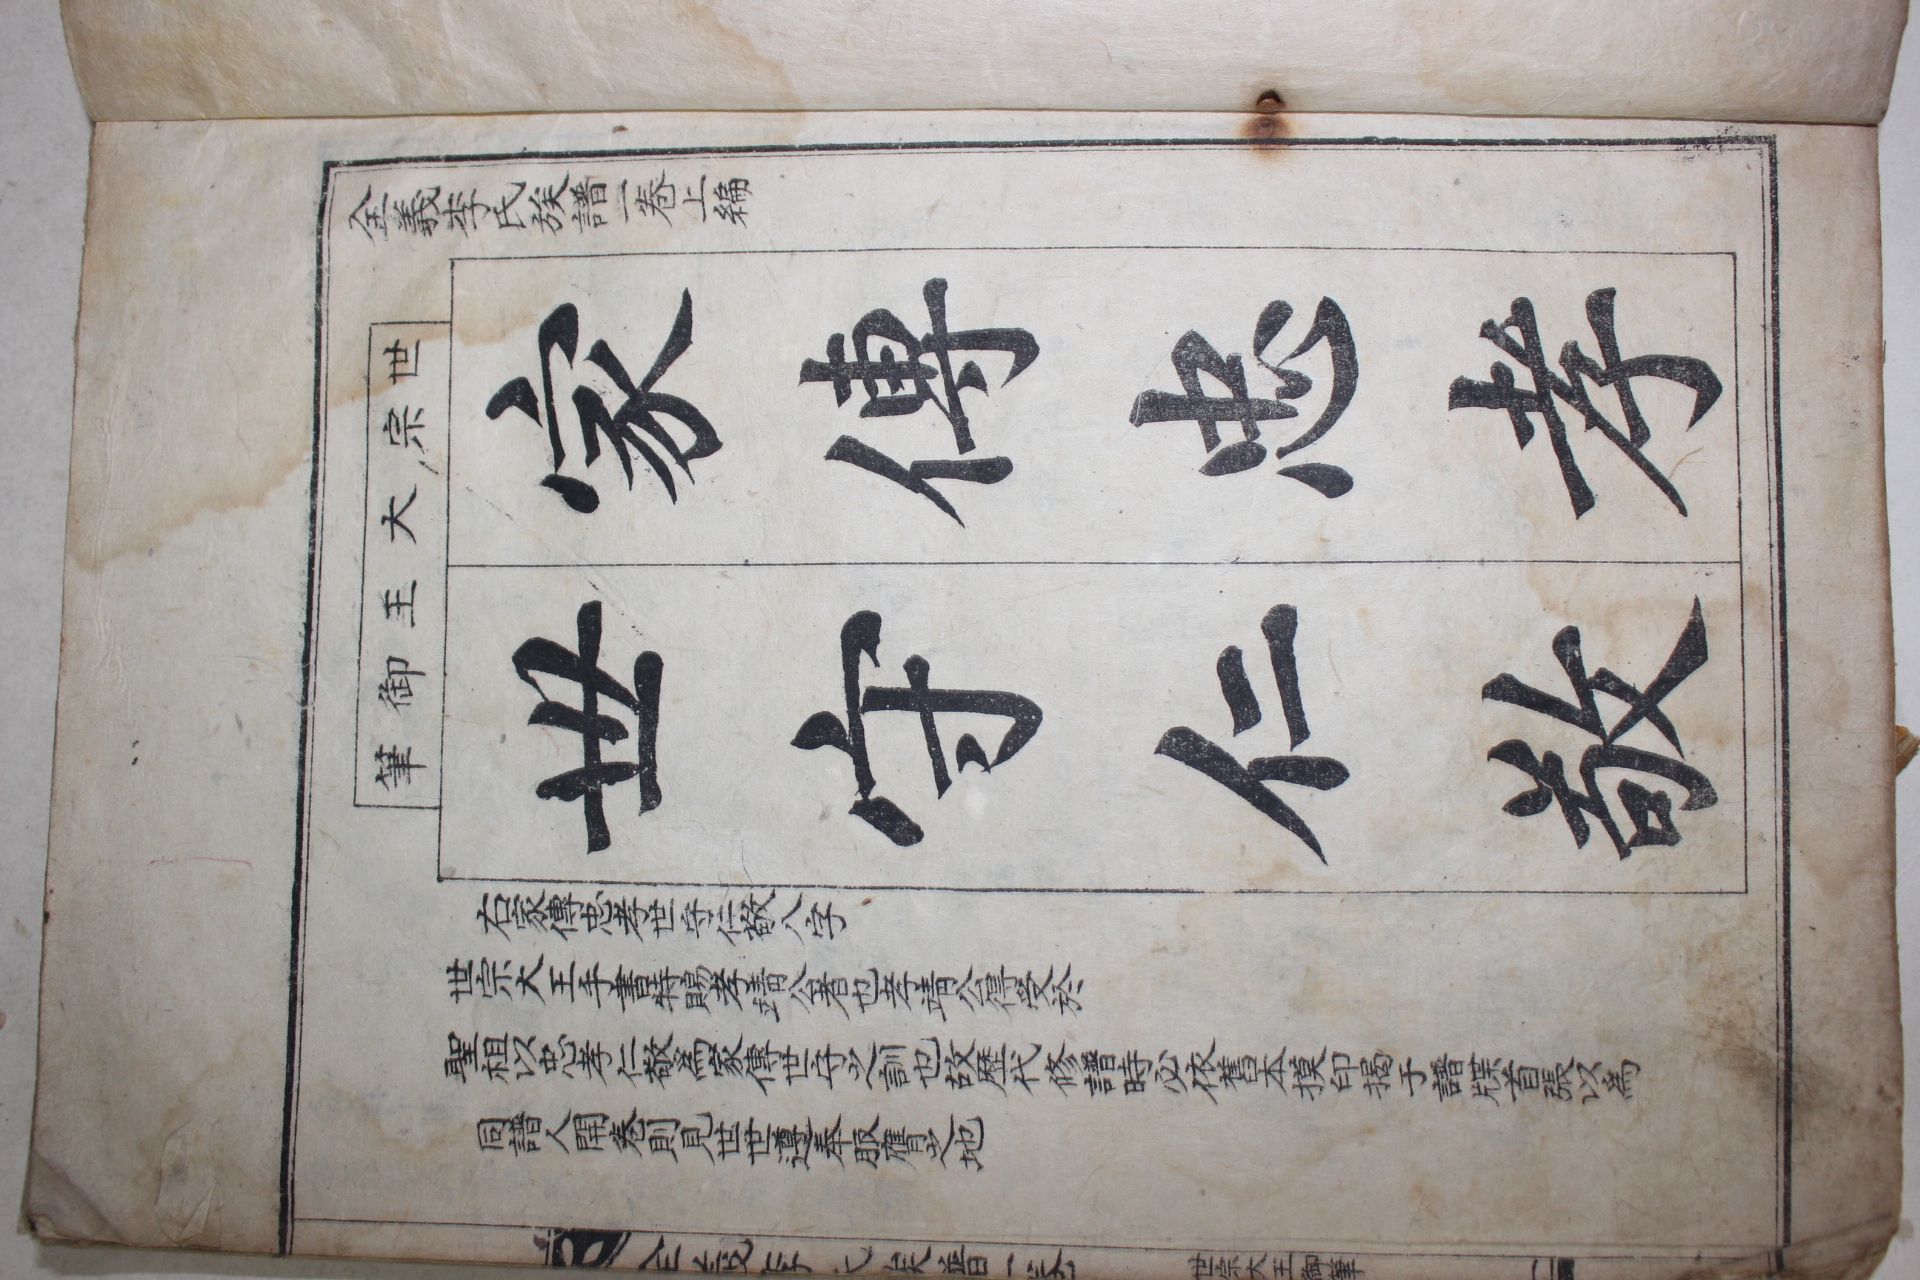 全義李氏族譜一卷上編
世宗大王御筆
家傳忠孝
世守仁敬
右家傳忠孝世守仁敬八字
世宗大王手書特賜孝靖公者也孝靖公得受於
聖祖以忠孝仁敬爲家傳世守之訓也故歷代修譜時必依舊本摸印揭于譜牒首張以爲
同譜人開卷則見世世遵奉服膺之地
全義李氏族譜一卷
世宗大王御筆
一